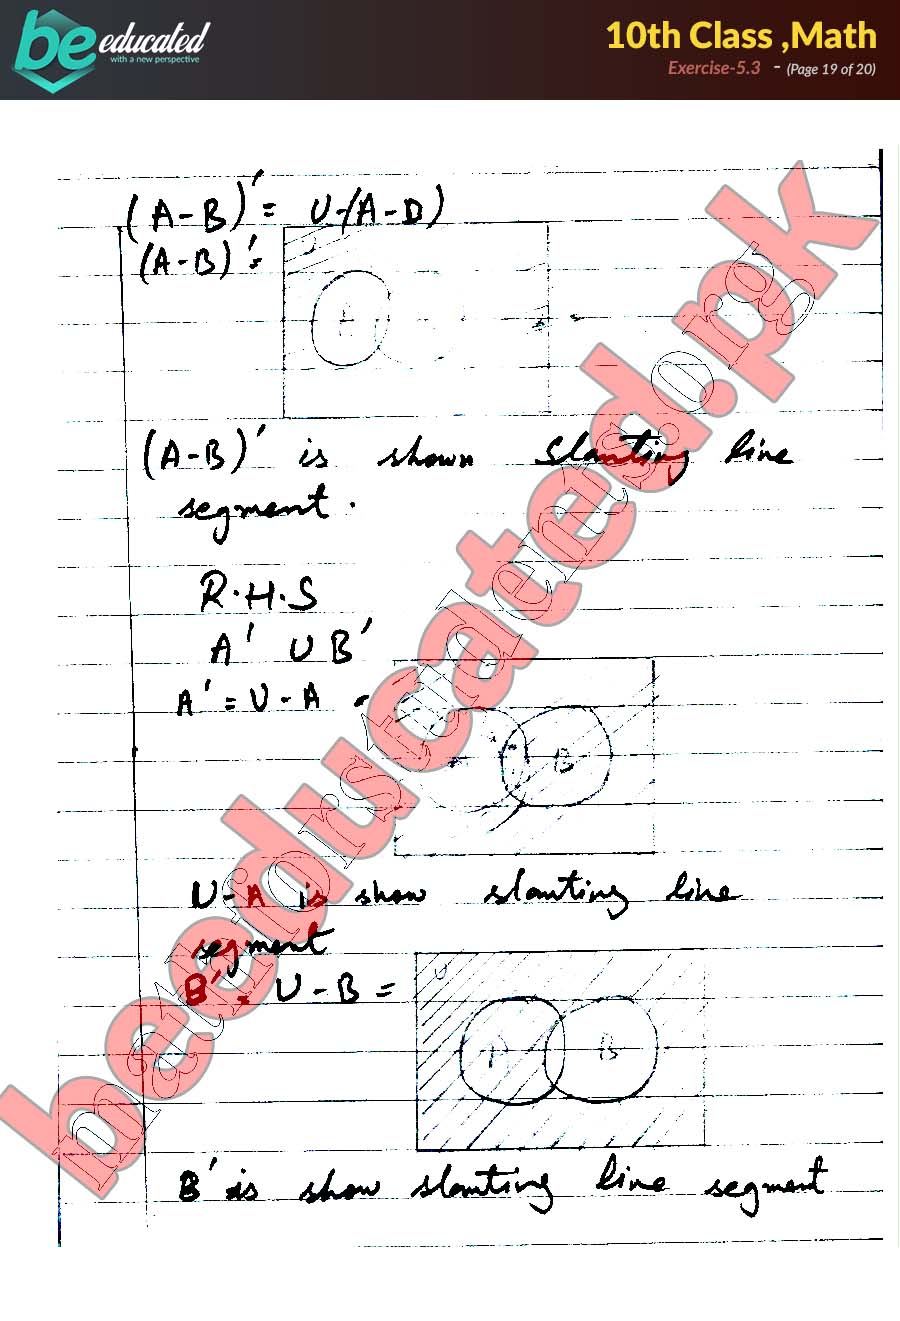 be educated
with a new perspective
10th Class ,Math
Exercise-5.3 - (Page 19 of 20)
(A-B)' = U-(A-D)
(A-B)' =
A
(A-B)' is shown Slanting line
segment.
R.H.S
A' U B'
A' = U - A
A B
U-A is show slanting line
segment
B' = U - B =
U
A B
B' is show slanting line segment
beeducated.pk